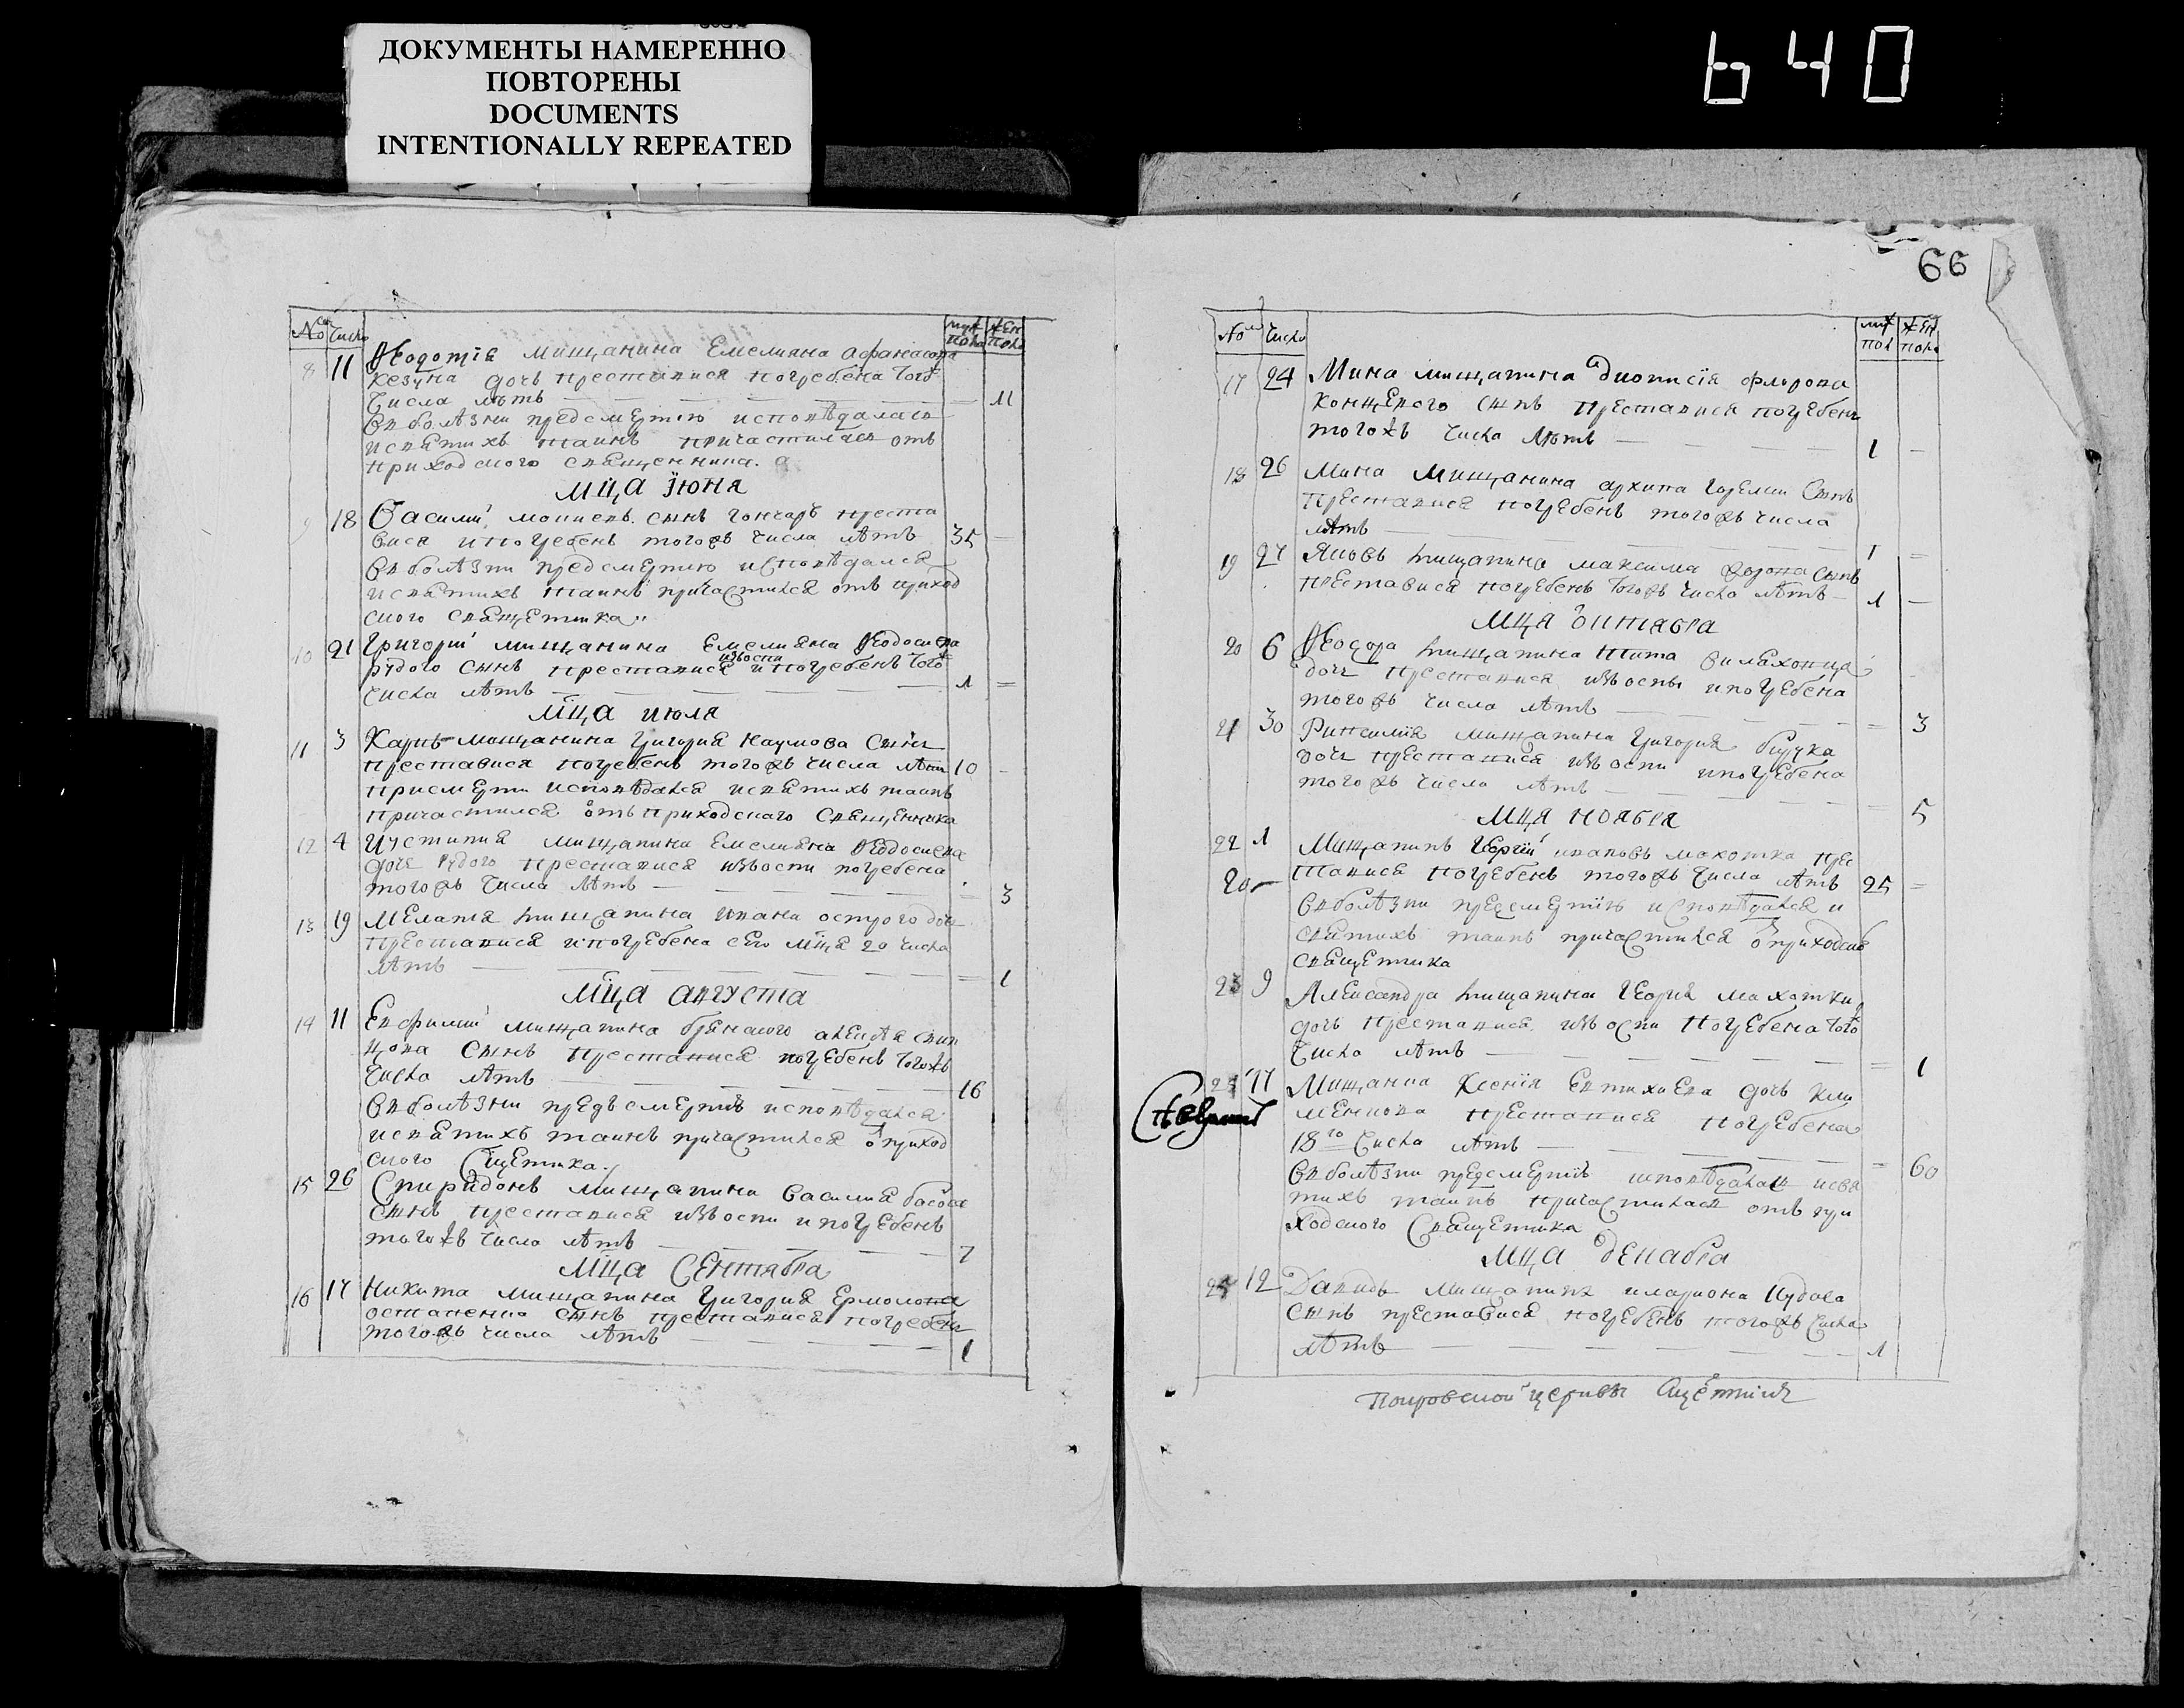 ДОКУМЕНТЫ НАМЕРЕННО
ПОВТОРЕНЫ
DOCUMENTS
INTENTIONALLY REPEATED
640
№ Число муж пола жен пола
8 11 Ѳеодотія мищанина Емелияна Афанасова
дочь преставися погребена того
числа лѣтъ 11
въ болѣзни предсмертію исповѣдалась
и святихъ таинъ причастилась отъ
приходского священника
Мца Іюня
9 18 Василій сынъ гончаръ преста
вися и погребенъ тогожъ числа лѣтъ 35
въ болѣзни предсмертію исповѣдался
и святихъ таинъ причастился отъ приход
ского священника
10 21 Григорій мищанина Емелияна Ѳеодосиева
рудого сынъ преставися изъоспи и погребенъ того
числа лѣтъ 1
Мца июля
11 3 Карпъ мищанина Григория Наумова сынъ
преставися погребенъ тогожъ числа лѣтъ 10
при смерти исповѣдался и святихъ таинъ
причастился отъ приходского священника
12 4 Иустиния мищанина Емелияна Ѳеодосиева
дочь рудого преставися изъоспи погребена
тогожъ числа лѣтъ 3
13 19 Мелания мищанина Ивана острого дочь
преставися и погребена сего мца 20 числа
лѣтъ 1
Мца августа
14 11 Евфимий мищанина
сынъ преставися погребенъ тогожъ
числа лѣтъ 16
въ болѣзни предъ смертію исповѣдался
и святихъ таинъ причастился о приход
ского сщенника
15 26 Спиридонъ мищанина Василия
сынъ преставися изъоспи и погребенъ
тогожъ числа лѣтъ 7
Мца Сентября
16 17 Никита мищанина Григория Ермолова
остапенка сынъ преставися погребенъ
тогожъ числа лѣтъ 1
66
№ Число муж пол жен пола
17 24 Мина мищанина Дионисія флорова
сынъ преставися погребенъ
тогожъ числа лѣтъ 1
18 26 Мина мищанина архипа сынъ
преставися погребенъ тогожъ числа
лѣтъ 1
19 27 Яковъ мищанина максима сынъ
преставися погребенъ тогожъ числа лѣтъ 1
Мця Октября
20 6 Ѳеодора мищанина Тита
дочь преставися изъоспы и погребена
тогожъ числа лѣтъ 3
21 30 мищанина Григория бирука
дочь преставися изъ оспи и погребена
тогожъ числа лѣтъ 5
Мця ноября
22 1 Мищанинъ Георгій ивановъ махотка прес
тавися погребенъ тогожъ числа лѣтъ 25
въ болѣзни предсмертію исповѣдался и
святихъ таинъ причастился о приходско
священника
23 9 Александра мищанина Георгия махотки
дочь преставися изъ оспи погребена того
числа лѣтъ 1
24 17 Мищанка Ксенія Евтихиева дочь
преставися погребена
18го числа лѣтъ 60
въ болѣзни предсмертію исповѣдалась и свя
тихъ таинъ причастилась отъ при
ходского священника
Мца Декабря
25 12 Давидъ мищанина илариона
сынъ преставися погребенъ тогожъ числа
лѣтъ 1
Покровской церкви сщенникъ